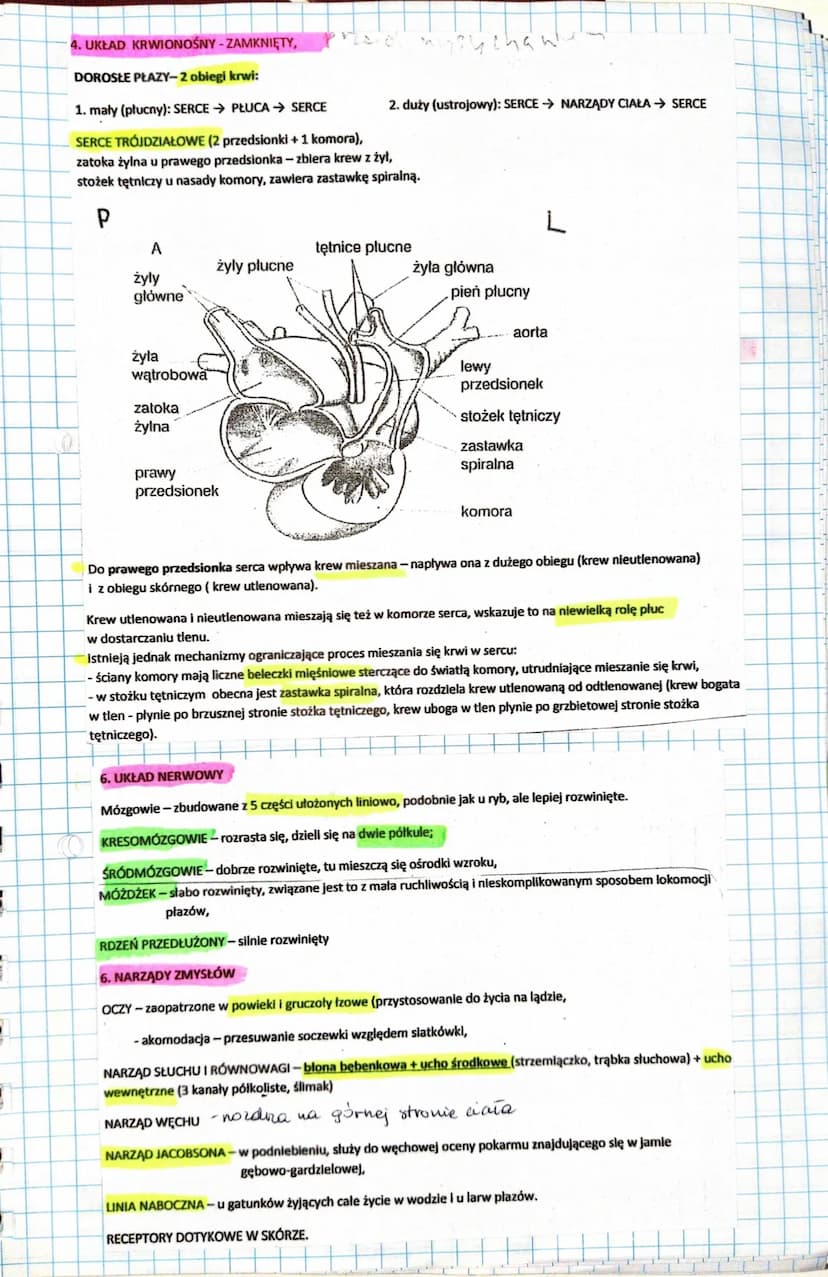 4. UKŁAD KRWIONOŚNY - ZAMKNIĘTY,
DOROSŁE PŁAZY– 2 obiegi krwi:
1. mały (płucny): SERCE → PŁUCA → SERCE 2. duży (ustrojowy): SERCE → NARZĄDY CIAŁA → SERCE
SERCE TRÓJDZIAŁOWE (2 przedsionki + 1 komora),
zatoka żylna u prawego przedsionka – zbiera krew z żył,
stożek tętniczy u nasady komory, zawiera zastawkę spiralną.
P L
A
żyły główne
żyły płucne
tętnice płucne
żyła główna
pień płucny
aorta
żyła wątrobowa
lewy przedsionek
zatoka żylna
stożek tętniczy
zastawka spiralna
prawy przedsionek
komora
Do prawego przedsionka serca wpływa krew mieszana – napływa ona z dużego obiegu (krew nieutlenowana)
i z obiegu skórnego ( krew utlenowana).
Krew utlenowana i nieutlenowana mieszają się też w komorze serca, wskazuje to na niewielką rolę płuc
w dostarczaniu tlenu.
Istnieją jednak mechanizmy ograniczające proces mieszania się krwi w sercu:
- ściany komory mają liczne beleczki mięśniowe sterczące do światłą komory, utrudniające mieszanie się krwi,
- w stożku tętniczym obecna jest zastawka spiralna, która rozdziela krew utlenowaną od odtlenowanej (krew bogata
w tlen - płynie po brzusznej stronie stożka tętniczego, krew uboga w tlen płynie po grzbietowej stronie stożka
tętniczego).
6. UKŁAD NERWOWY
Mózgowie – zbudowane z 5 części ułożonych liniowo, podobnie jak u ryb, ale lepiej rozwinięte.
KRESOMÓZGOWIE – rozrasta się, dzieli się na dwie półkule;
ŚRÓDMÓZGOWIE – dobrze rozwinięte, tu mieszczą się ośrodki wzroku,
MÓŻDŻEK – słabo rozwinięty, związane jest to z mała ruchliwością i nieskomplikowanym sposobem lokomocji
płazów,
RDZEŃ PRZEDŁUŻONY – silnie rozwinięty
6. NARZĄDY ZMYSŁÓW
OCZY – zaopatrzone w powieki i gruczoły łzowe (przystosowanie do życia na lądzie,
- akomodacja – przesuwanie soczewki względem siatkówki,
NARZĄD SŁUCHU I RÓWNOWAGI – błona bębenkowa + ucho środkowe (strzemiączko, trąbka słuchowa) + ucho
wewnętrzne (3 kanały półkoliste, ślimak)
NARZĄD WĘCHU - nozdrza na górnej stronie ciała
NARZĄD JACOBSONA – w podniebieniu, służy do węchowej oceny pokarmu znajdującego się w jamie
gębowo-gardzielowej,
LINIA NABOCZNA – u gatunków żyjących całe życie w wodzie i u larw płazów.
RECEPTORY DOTYKOWE W SKÓRZE.